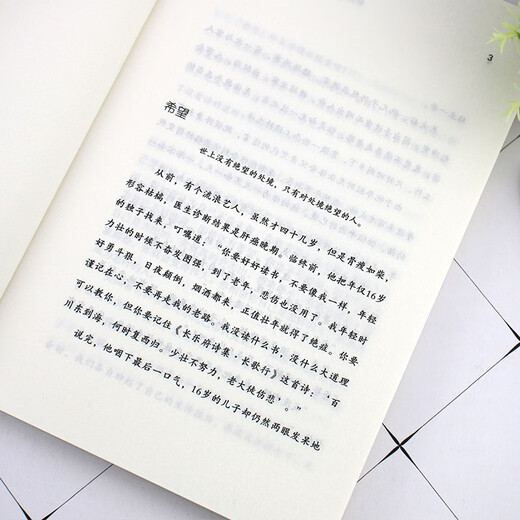 3
希望
世上没有绝望的处境，只有对处境绝望的人。
从前，有个流浪艺人，虽然才四十几岁，但是骨瘦如柴，
形容枯槁，医生诊断结果是肝癌晚期。临终前，他把年仅16岁
的独子找来，叮嘱道：“你要好好读书，不要像我一样，年轻
力壮的时候不奋发图强，到了老年，悲伤也没用了。我年轻时
好勇斗狠，日夜颠倒，烟酒都来，正值壮年就得了绝症。你要
谨记在心，不要再走我的老路。我没读什么书，没什么大道理
可以教你，但你要记住《长乐府诗集·长歌行》这首诗：‘百
川东到海，何时复西归。少壮不努力，老大徒伤悲’。”
说完，他咽下最后一口气，16岁的儿子却仍然两眼发呆地